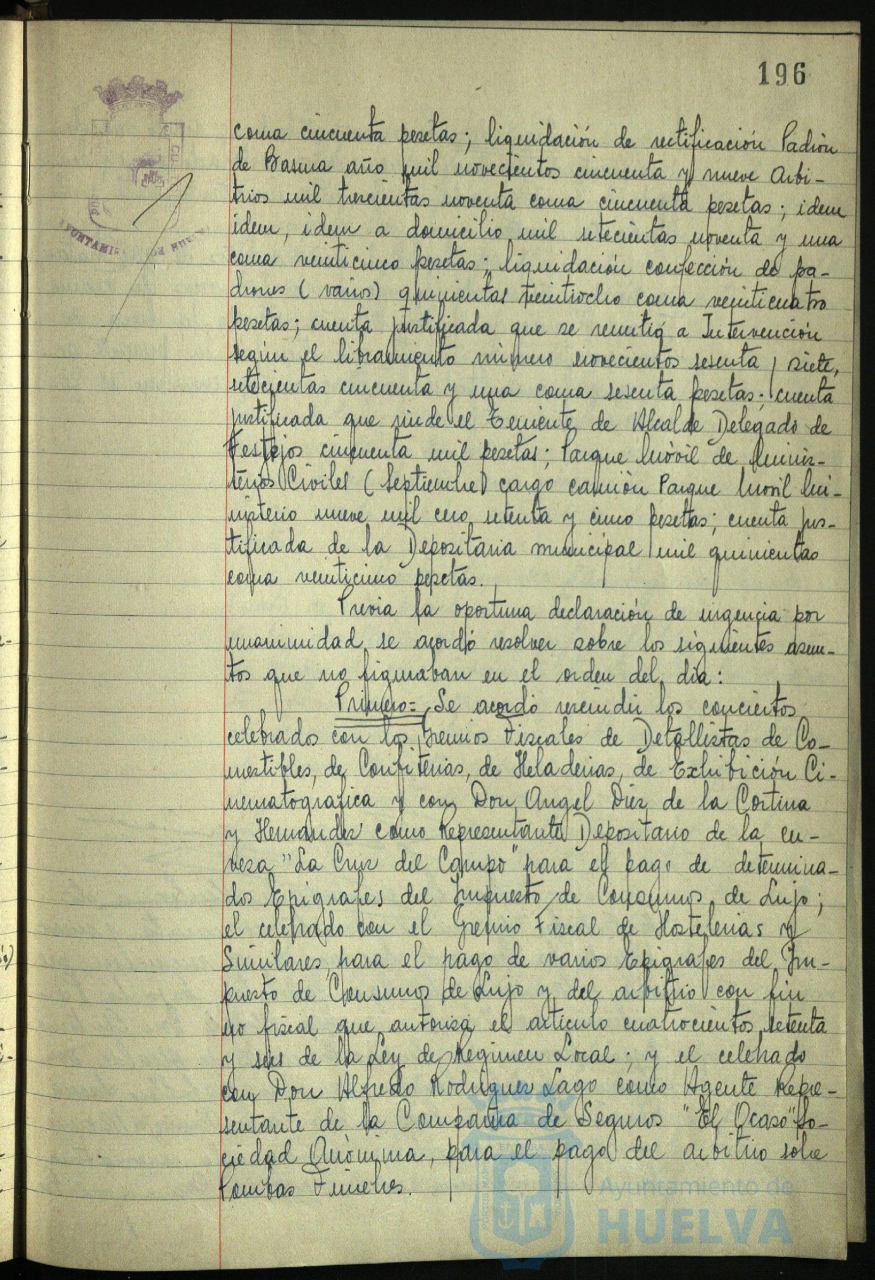 196
coma cincuenta pesetas; liquidación de rectificación Padrón
de Basura año mil novecientos cincuenta y nueve Arbi-
trios mil trescientas noventa coma cincuenta pesetas; idem
idem, idem a domicilio mil setecientas noventa y una
coma veinticinco pesetas; liquidación confección de pa-
drones (varios) quinientas treintiocho coma veinticuatro
pesetas; cuenta justificada que se remitió a Intervención
según el libramiento número novecientos sesenta y siete,
setecientas cincuenta y una coma sesenta pesetas; cuenta
justificada que rinde el Teniente de Alcalde Delegado de
Festejos cincuenta mil pesetas; Parque Móvil de Minis-
terios Civiles (Septiembre) cargo camión Parque Movil Mi-
nisterio nueve mil cero setenta y cinco pesetas; cuenta jus-
tificada de la Depositaria municipal mil quinientas
coma veinticinco pesetas.
Previa la oportuna declaración de urgencia por
unanimidad se acordó resolver sobre los siguientes asun-
tos que no figuraban en el orden del dia:
Primero= Se acordó rescindir los conciertos
celebrados con los Gremios Fiscales de Detallistas de Co-
mestibles, de Confiterias, de Heladerias, de Exhibición Ci-
nematografica y con Don Angel Diez de la Cortina
y Hernandez como Representante Depositario de la cer-
veza "La Cruz del Campo" para el pago de determina-
dos Epigrafes del Impuesto de Consumos de Lujo;
el celebrado con el Gremio Fiscal de Hostelerias y
Similares para el pago de varios Epigrafes del Im-
puesto de Consumos de Lujo y del arbitrio con fin
no fiscal que autoriza el articulo cuatrocientos setenta
y seis de la Ley de Regimen Local; y el celebrado
con Don Alfredo Rodriguez Lago como Agente Repre-
sentante de la Compañia de Seguros "El Ocaso" So-
ciedad Anónima, para el pago del arbitrio sobre
Pompas Fúnebres.
Ayuntamiento de
HUELVA